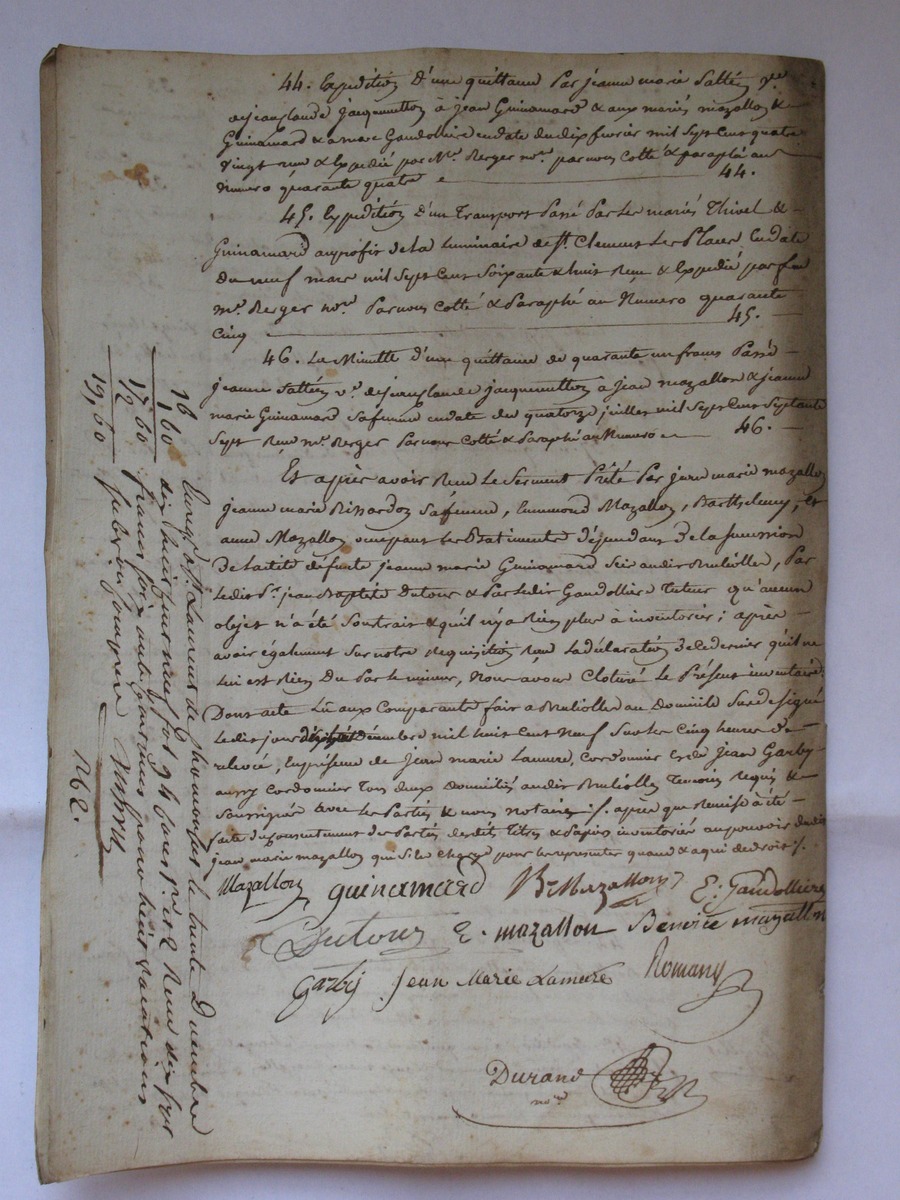 44. Expedition d'une quittance par jeanne marie Sattin v.ve
de jean claude jacquemetton à jean Guinamard & aux mariés mazallon &
Guinamard & a marc Gaudolliere en date du dix fevrier mil sept cent quatre
vingt reçu & expedié par M.e Berger no.re par nous cotté & paraphé au
numero quarante quatre 44.
45. Expedition d'un transport passé par les mariés Thivel &
Guinamard au profit de la luminaire de st. Clement les Places en date
du neuf mars mil sept cent soixante & huit reçu & expedié par feu
m.e Berger no.re par nous cotté & paraphé au numero quarante
cinq 45.
46. La minutte d'une quittance de quarante un francs passé
jeanne Sattin v.e de jean claude jacquemetton à jean mazallon & jeanne
marie Guinamard sa femme en date du quatorze juillet mil sept cent septante
sept reçu m.e Berger par nous cotté & paraphé au numero 46.
Et après avoir reçu le serment prêté par jean marie mazallon
jeanne marie Rissardon sa femme, Mazallon, Barthelemy, et
anne Mazallon occupant les batiments dépendans de la succession
de la dite défunte jeanne marie Guinamard sis audit Brulliolles, par
ledit s.r jean Baptiste Dutour & par ledit Gaudolliere tuteur qu'aucun
objet n'a été soustrait & qu'il n'y a rien plus à inventorier; après
avoir également sur notre requisition reçu la déclaration de ce dernier qu'il ne
lui est rien du par le mineur, nous avons cloturé le présent inventaire.
Dont acte lu aux comparants fait a Brulliolles au domicile susdesigné
ledit jour decembre mil huit cent neuf sur les cinq heures de
relevée, en présence de jean marie Lamure, cordonnier et de jean Garby
aussy cordonnier tous deux domiciliés audit Brulliolles temoins requis &
soussignés avec les parties & nous notaire ./. après que remise a été
faite du consentement des parties desdits titres & papiers inventoriés au pouvoir dudit
jean marie mazallon qui s'est chargé pour les representer quand & a qui de droit ./.
Mazallon guinamard B.e Mazallon E. Gaudolliere
Dutour E. mazallon Benoite mazallon
Garby Jean Marie Lamure Romany
Durand
no.re
Enreg.é à St. Laurent de Chamousset le trente Decembre
dix huit cent neuf fol. 94 Reçu dix sept
francs soixante centimes pour huit vacations
subvention comprise
16
1,60
17,60
1/2
19,60
162.